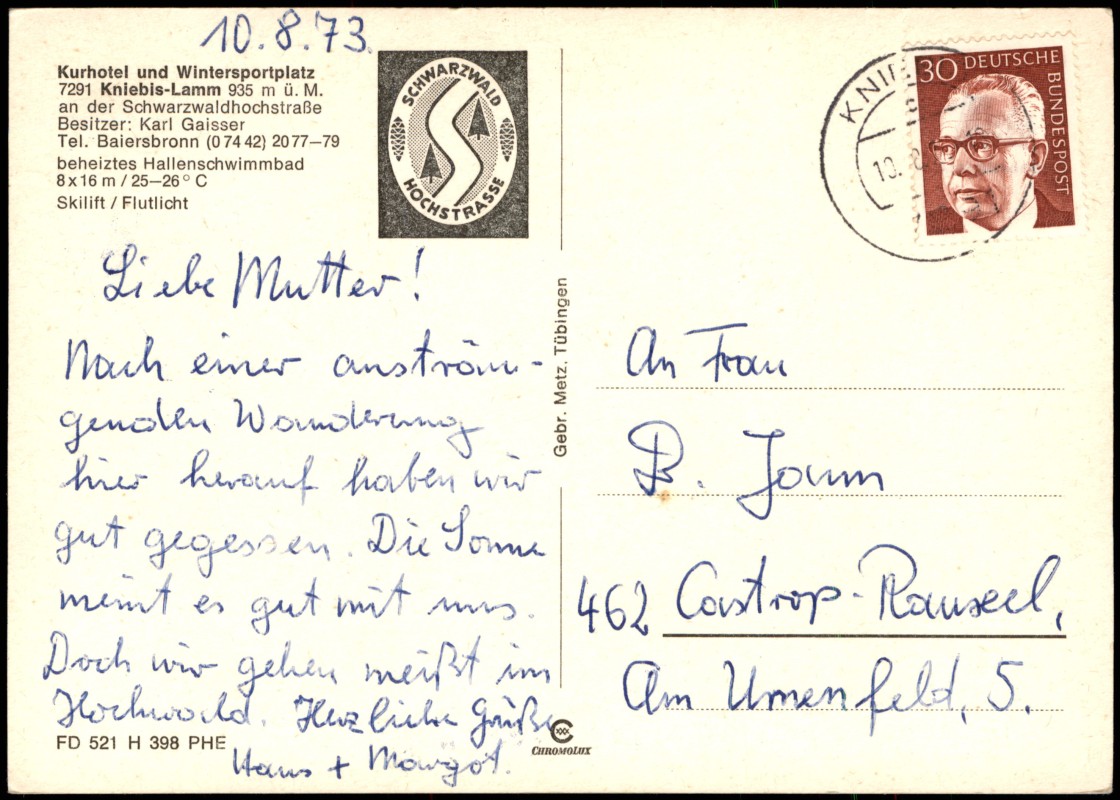 10.8.73.
Kurhotel und Wintersportplatz
7291 Kniebis-Lamm 935 m ü. M.
an der Schwarzwaldhochstraße
Besitzer: Karl Gaisser
Tel. Baiersbronn (0 74 42) 2077—79
beheiztes Hallenschwimmbad
8 x 16 m / 25—26° C
Skilift / Flutlicht
SCHWARZWALD
HOCHSTRASSE
30 DEUTSCHE
BUNDESPOST
Liebe Mutter!
Nach einer anström-
genden Wanderung
hier herauf haben wir
gut gegessen. Die Sonne
meint es gut mit uns.
Doch wir gehen meißt im
Hochwald. Herzliche Grüße
Hans + Margot.
FD 521 H 398 PHE
Gebr. Metz, Tübingen
CHROMOLUX
An Frau
B.
462 Castrop-Rauxel,
Am Urnenfeld, 5.